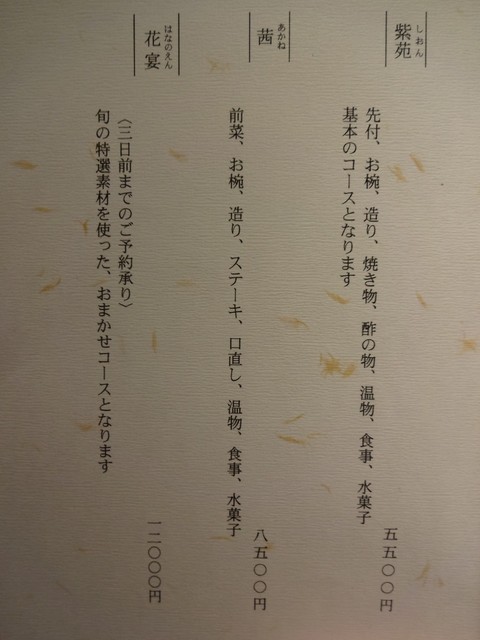 しおん
紫苑
先付、お椀、造り、焼き物、酢の物、温物、食事、水菓子
基本のコースとなります
五五〇〇円
あかね
茜
前菜、お椀、造り、ステーキ、口直し、温物、食事、水菓子
八五〇〇円
はなのえん
花宴
〈三日前までのご予約承り〉
旬の特選素材を使った、おまかせコースとなります
一二〇〇〇円